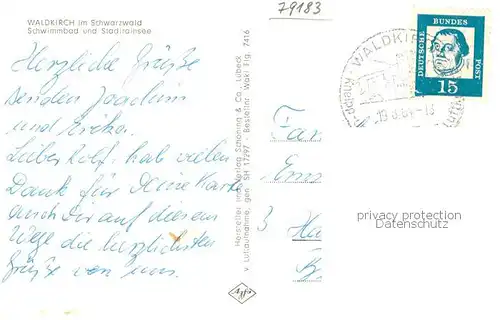 79183
WALDKIRCH im Schwarzwald
Schwimmbad und Stadtrainsee
Herzliche Grüße
senden Joachim
und Erika.
Lieber Rolf, hab vielen
Dank für Deine Karte
auch Dir auf diesem
Wege die herzlichsten
Grüße von uns.
Hersteller und Verlag Schöning & Co., Lübeck
v Luftaufnahme, gen. SH 17/97 - Bestellnr. Waki Flg. 7416
agfa
WALDKIRCH
DEUTSCHE BUNDES POST
15
Fam
Em
3 Ha
privacy protection
Datenschutz